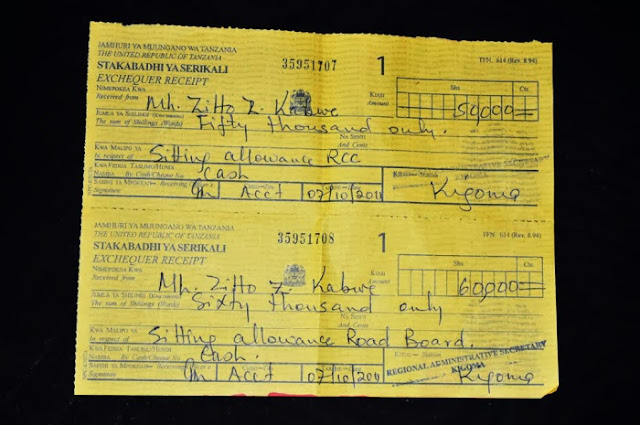 JAMHURI YA MUUNGANO WA TANZANIA
THE UNITED REPUBLIC OF TANZANIA
STAKABADHI YA SERIKALI
EXCHEQUER RECEIPT
35951707
1
TFN. 614 (Rev. 8.94)
NIMEPOKEA KWA
Received from
Mh. Zitto Z. Kabwe
KIASI
Amount
Shs
Cts
50,000=
JUMLA YA SHILINGI (Kwa maneno)
The sum of Shillings (Words)
Fifty thousand only.
No Senti
And Cents
KWA MALIPO YA
In respect of
Sitting allowance RCC
KWA FEDHA TASLIMU/HUNDI
NAMBA By Cash/Cheque No
Cash
Kituo - Station
Kigoma
Signature
Acct
07/10/2011
JAMHURI YA MUUNGANO WA TANZANIA
THE UNITED REPUBLIC OF TANZANIA
STAKABADHI YA SERIKALI
EXCHEQUER RECEIPT
35951708
1
TFN. 614 (Rev. 8.94)
NIMEPOKEA KWA
Received from
Mh. Zitto Z. Kabwe
KIASI
Amount
Shs
Cts
60,000=
JUMLA YA SHILINGI (Kwa maneno)
The sum of Shillings (Words)
Sixty thousand only
No Senti
And Cents
KWA MALIPO YA
In respect of
Sitting allowance Road Board.
KWA FEDHA TASLIMU/HUNDI
NAMBA By Cash/Cheque No
Cash.
Kituo - Station
REGIONAL ADMINISTRATIVE SECRETARY
KIGOMA
Kigoma
Signature
Acct
07/10/2011